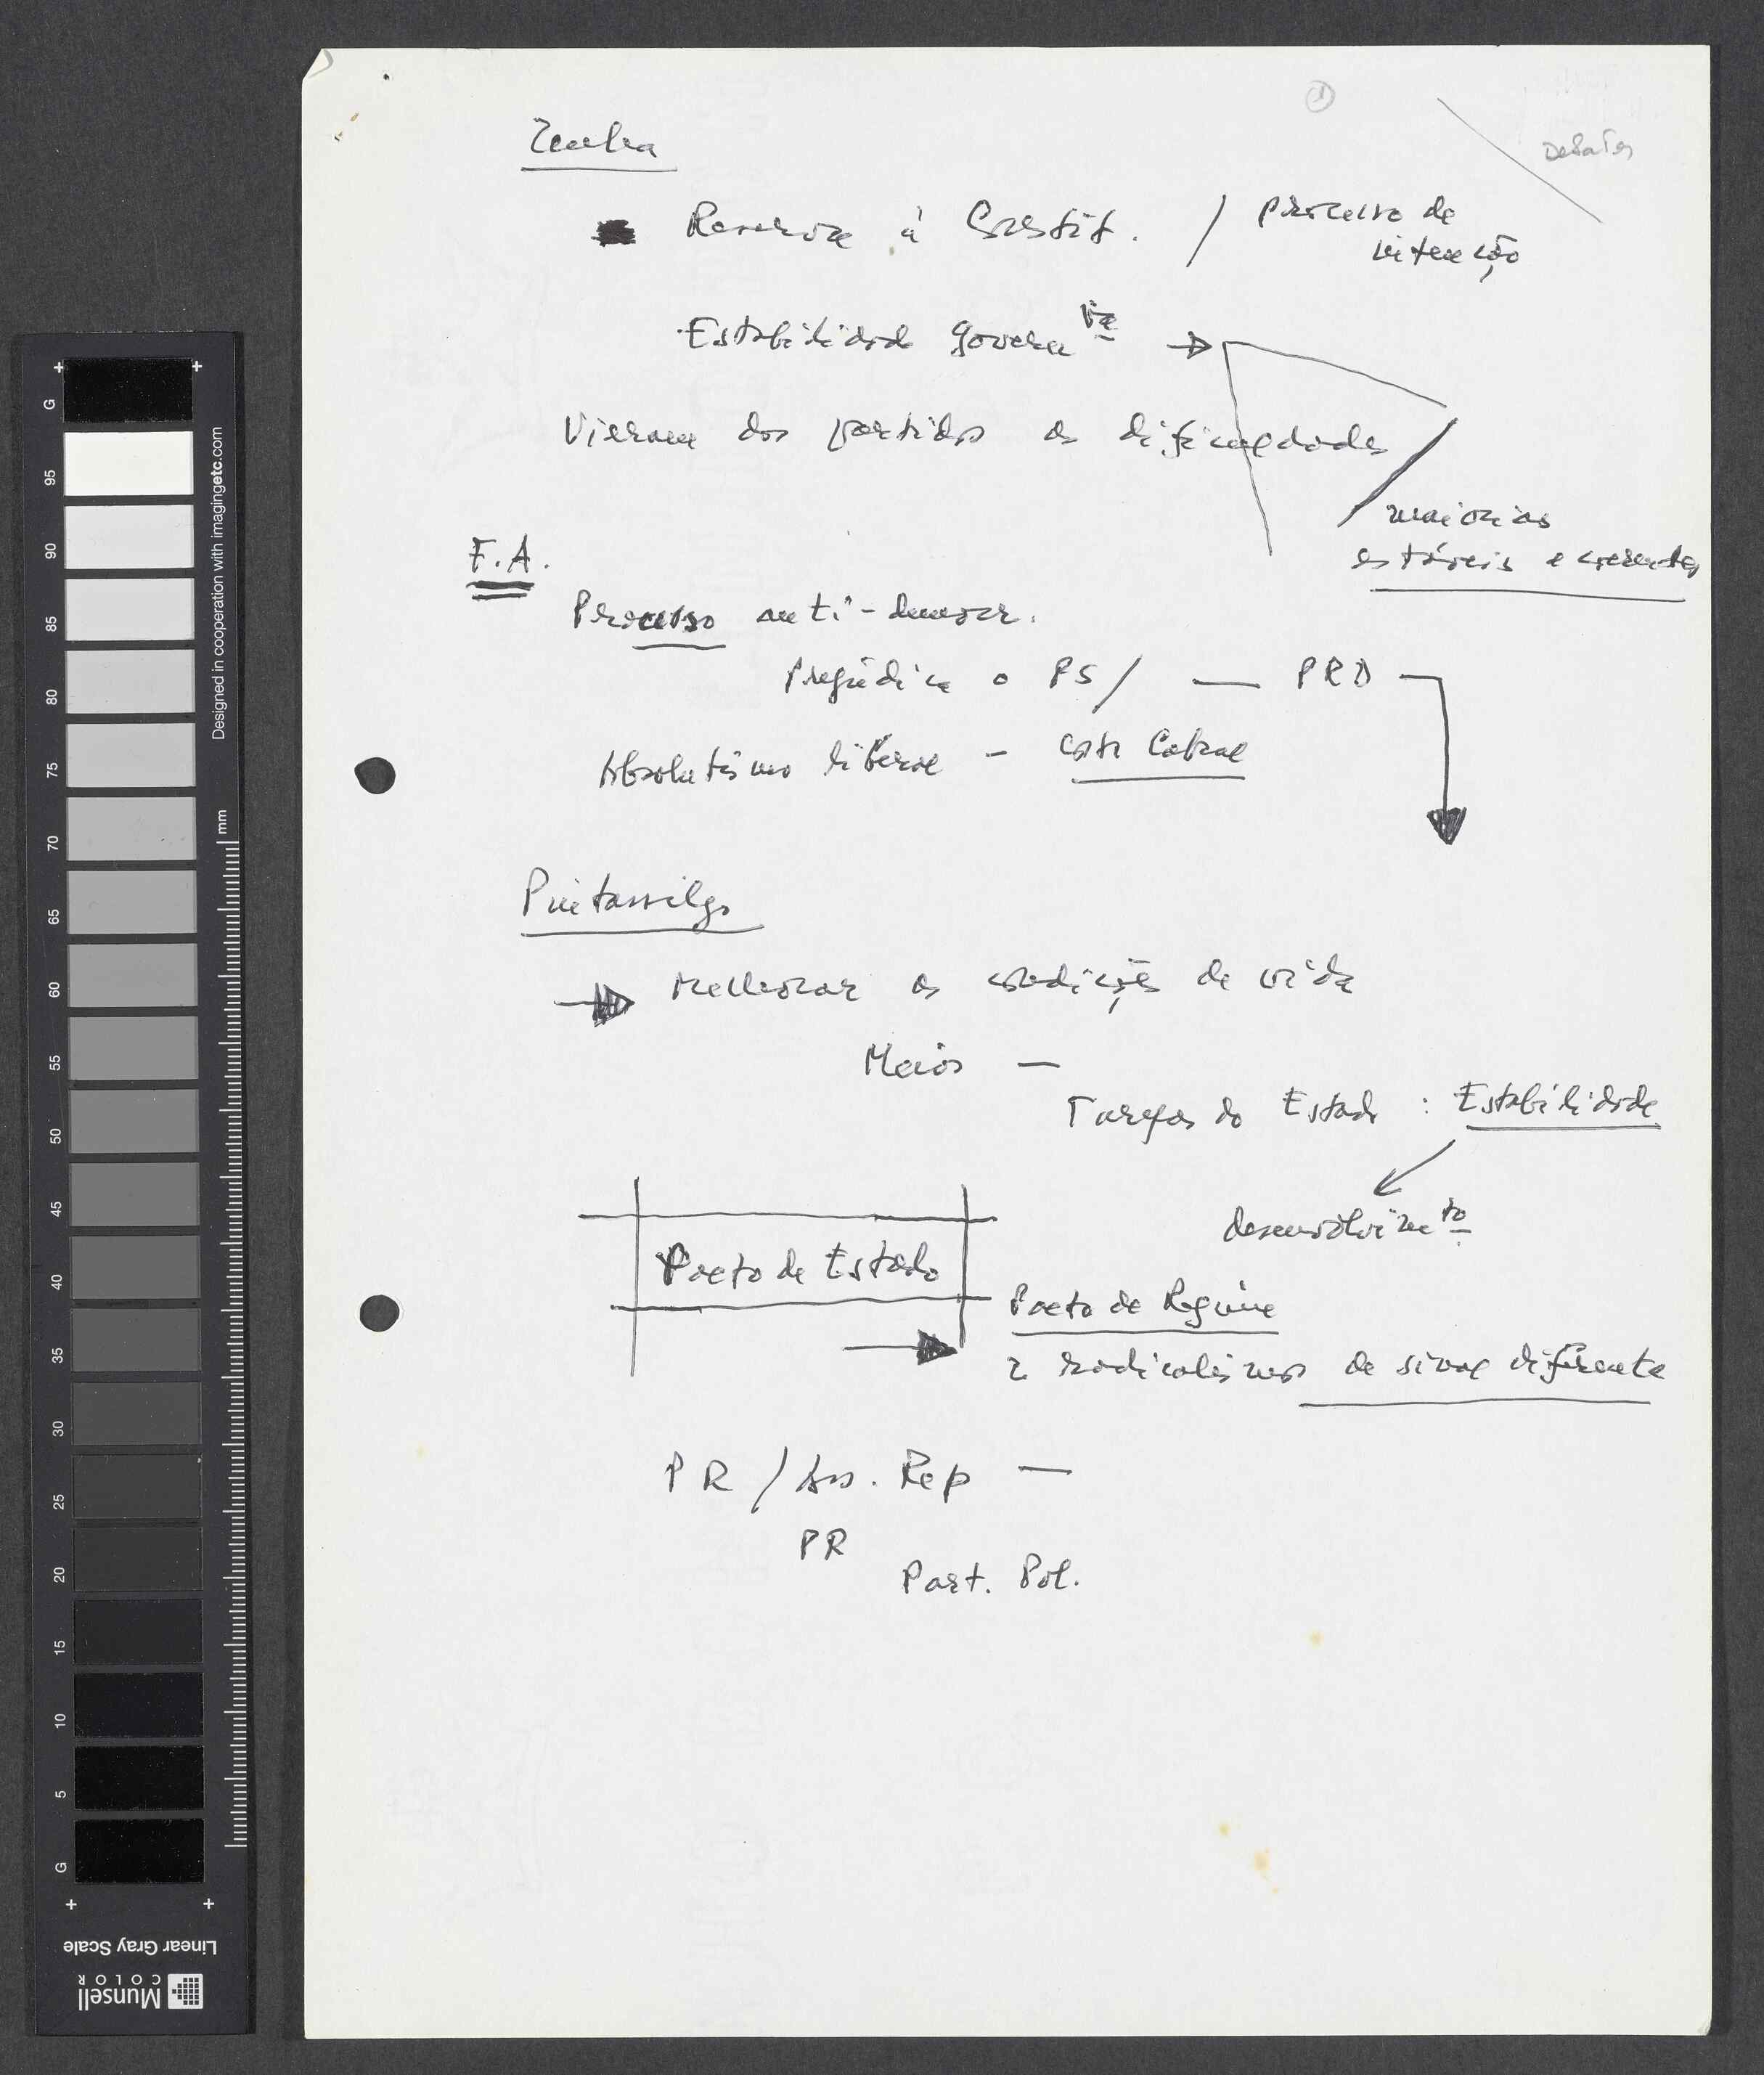 ①
Debates
Zenha
Reveroze à Constit. / processo de
intenção
Estabilidade govern va
Vieram dos partidos as dificuldades
maiorias
estáveis e coerentes
F.A.
Processo anti-democr.
Prejudica o PS / — PRD
Absolutismo liberal — Costa Cabral
Pintassilgo
Melhorar as condições de vida
Meios —
Tarefas do Estado : Estabilidade
desenvolvimto
Pacto de Estado
Pacto de Regime
2 radicalismos de sinal diferente
PR / Ass. Rep —
PR
Part. Pol.
G
95
90
85
80
75
70
65
60
55
50
45
40
35
30
25
20
15
10
5
G
mm
Designed in cooperation with imagingetc.com
Linear Gray Scale
Munsell
COLOR